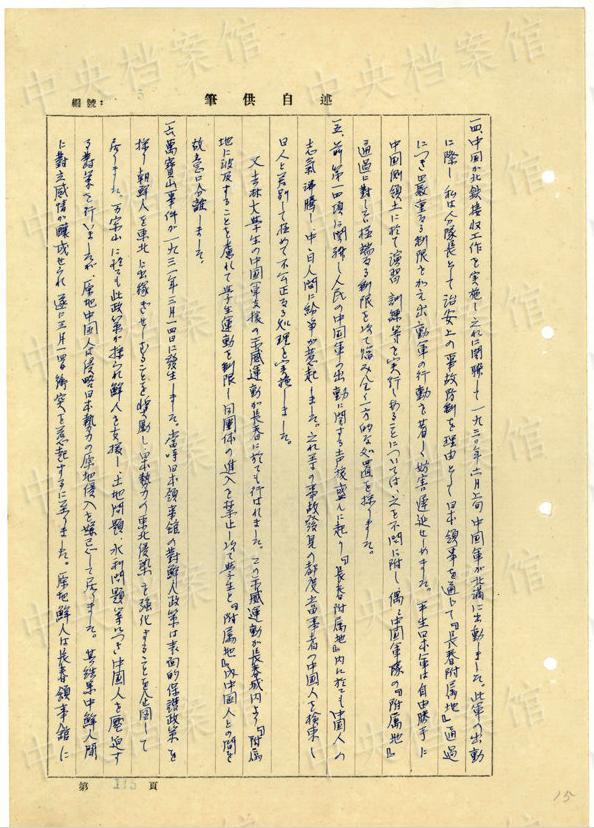 編號： 5
筆供自述
四、中国が北鉄接収工作を実施し之れに関聯して一九三〇年六月上旬中国軍が北満に出動しました。此軍の出動
に際し私は分隊長として治安上の事故防制を理由として日本領事を通して『長春附属地』通過
につき厳重なる制限を加え出動軍の行動を著しく妨害遅延せしめました。平生日本軍は自由勝手に
中国側領土に於て演習、訓練等を実行しあることについては之を不問に附し偶々中国軍隊の『附属地』
通過に対しては極端なる制限を以て臨み全く一方的な処置を採りました。
五、前第四項に関聯し人民の中国軍の出動に関する声援盛んに起り『長春附属地』内に於ても中国人の
志氣沸騰し中、日人間に紛争が惹起しました。之れ等の事故発見の都度当事者の中国人を検束し
日人と差別して極めて不公正なる処理を実施しました。
又吉林大学生の中国軍支援の示威運動が長春に於ても行はれました。この示威運動が長春城内より『附属
地』に波及することを慮れて学生運動を制限し同團体の進入を禁止し以て学生と『附属地』内中国人との間を
故意に分離しました。
六、萬寶山事件が一九三一年三月一四日に発生しました。当時日本領事館の對鮮人政策は表面的保護政策を
採り朝鮮人を東北に出稼ぎせしむることを奨励し日本勢力の東北侵染を強化することを企図して
居りました。万宝山に於ても此政策が採られ鮮人を支援し、土地問題、水利問題等につき中国人を圧迫す
る對策を行いましたが、原地中国人は侵略日本勢力の原地侵入を嫌忌して居りました。其結果中鮮人間
に對立感情が醸成せられ遂に三月一四日衝突を惹起するに至りました。原地鮮人は長春領事館に
第 115 頁
15
中央档案馆